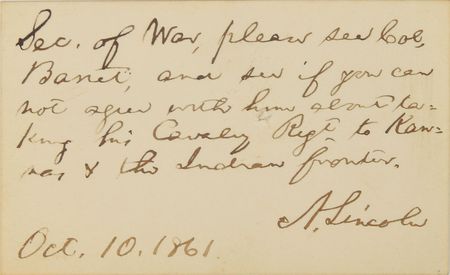 Sec. of War, please see Col.
Barret, and see if you can
not agree with him about ta-
king his Cavalry Regt to Kan-
sas & the Indian frontier.
A. Lincoln
Oct. 10. 1861.